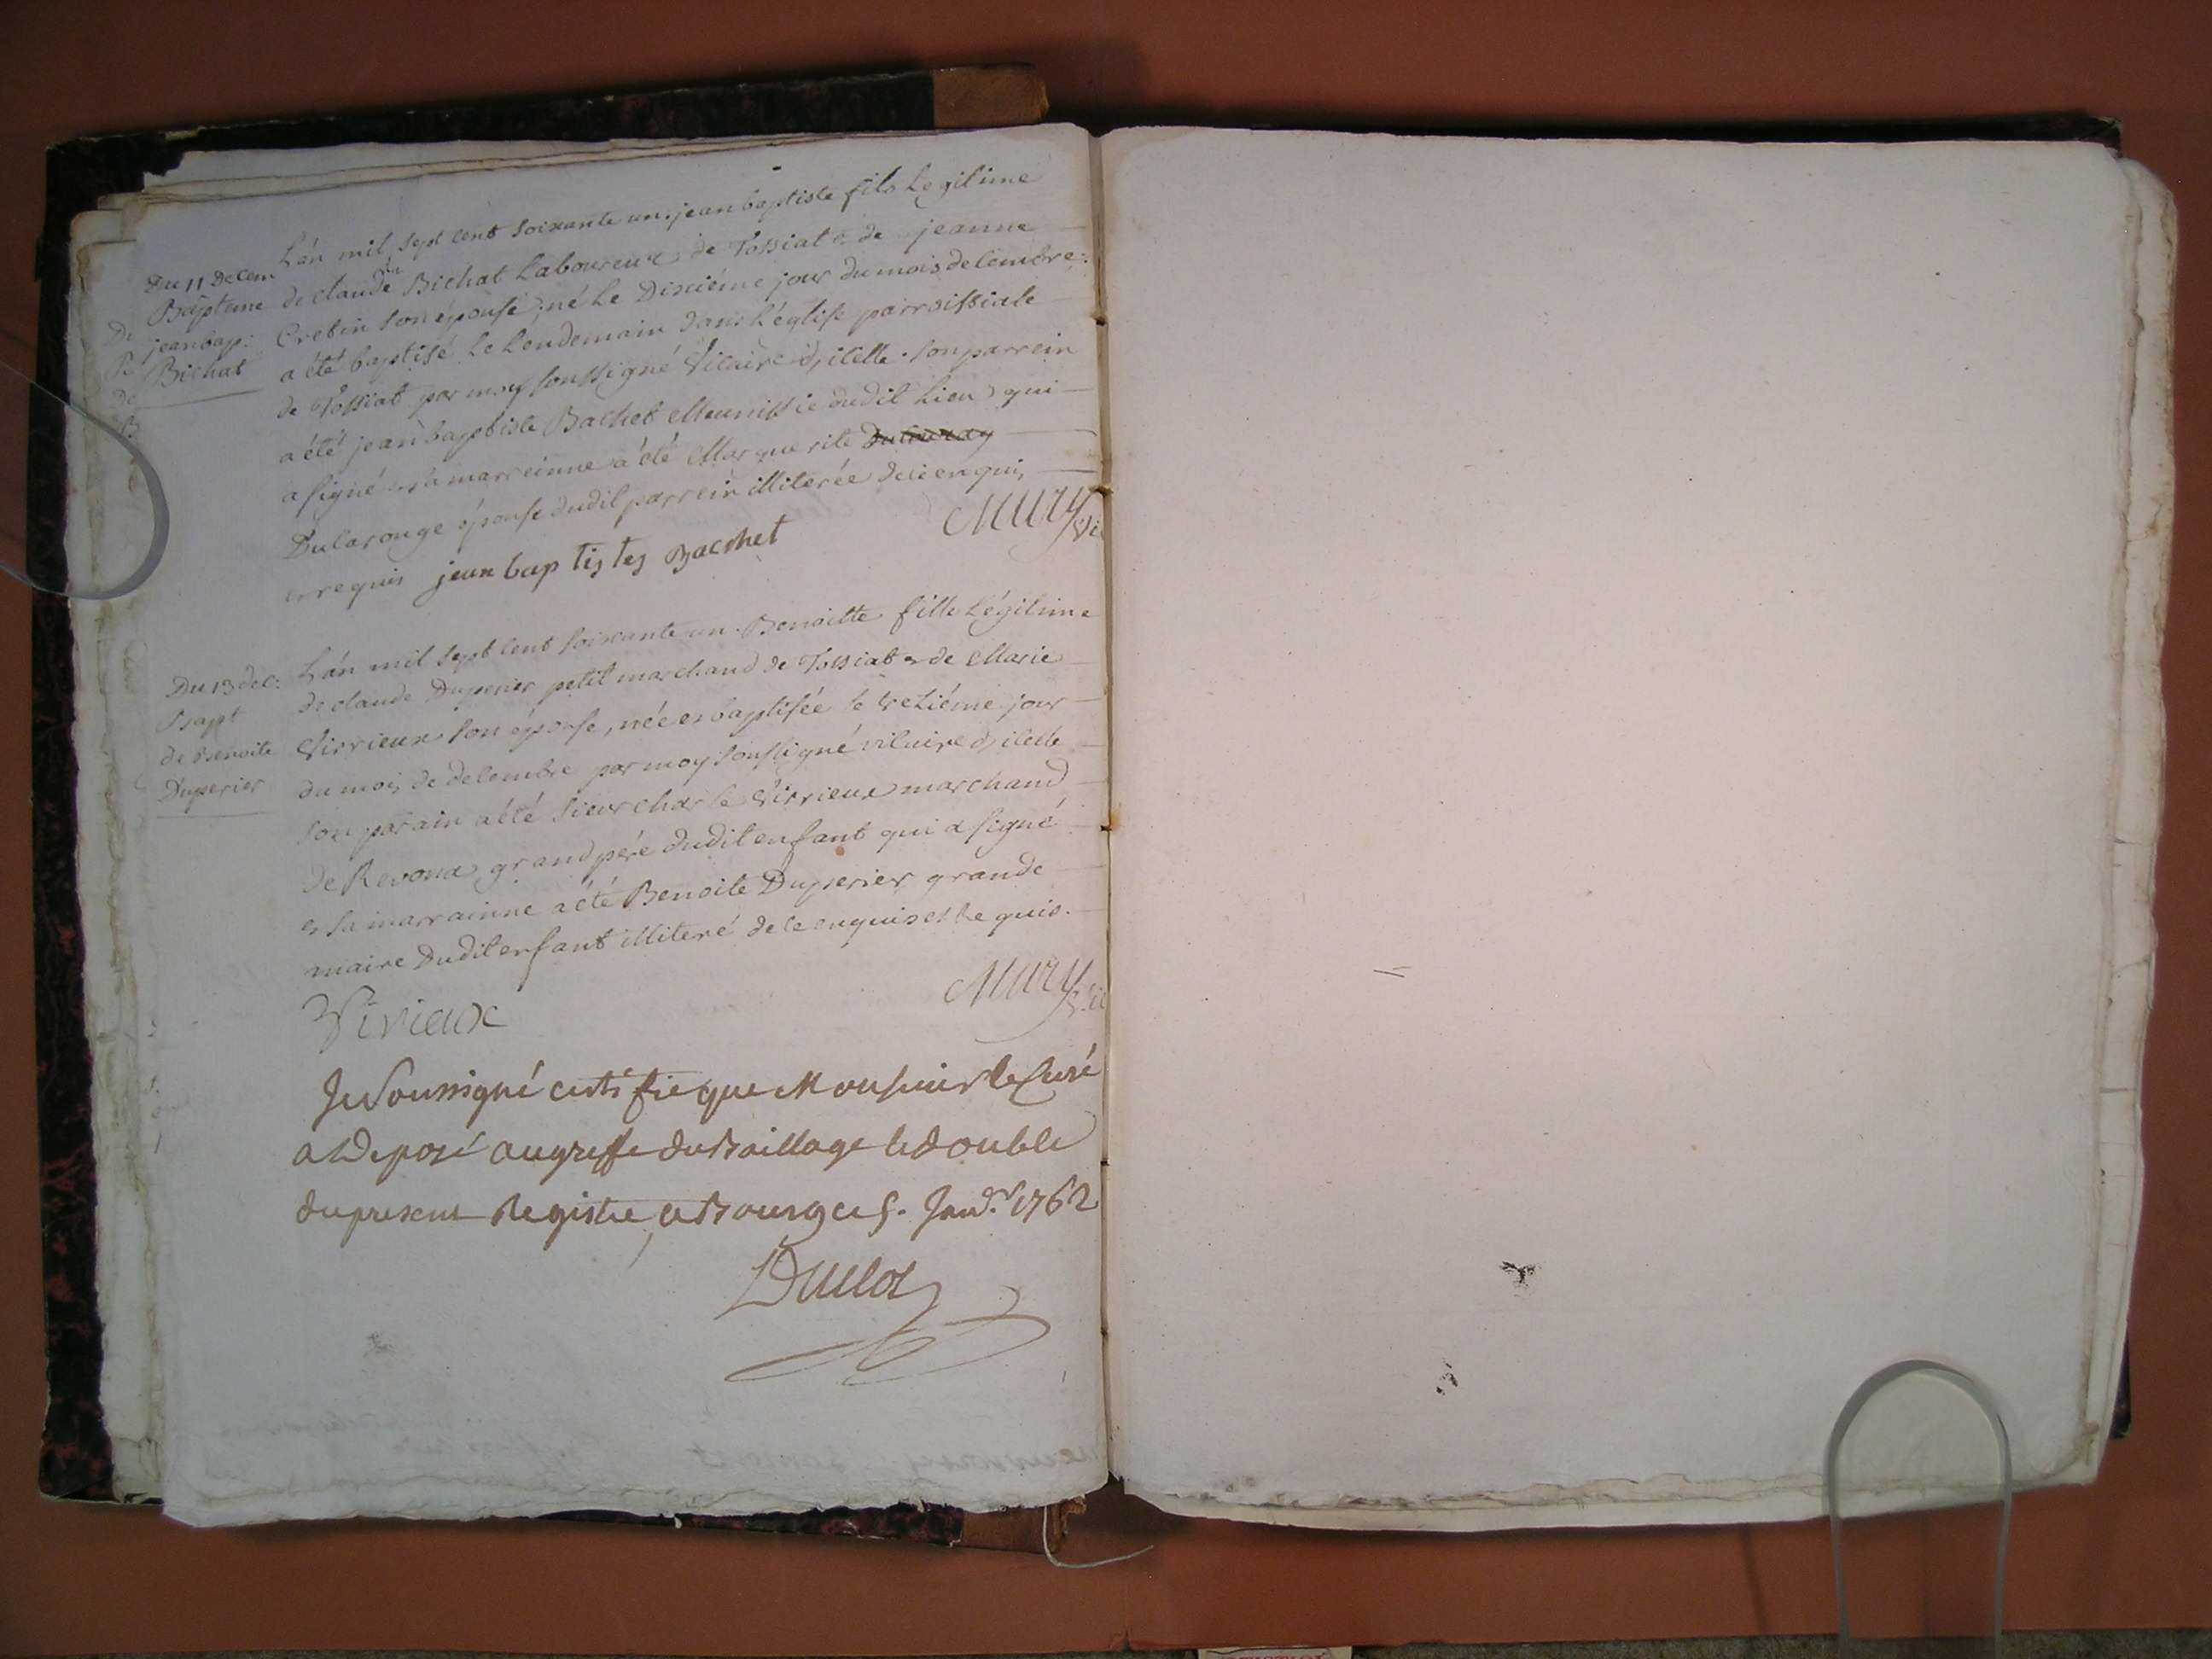 Du 11 Decem
Bapteme
jeanbap:
Bichat
L'án mil sept cent soixante un, jean baptiste fils Legitime
de claude Bichat Laboureur de Tossiat & de jeanne
Cretin son épouse, né Le Dixiéme jour du mois decembre:
a été baptisé Le Lendemain dans L'église parroissiale
de Tossiat par moy soussigné Vicaire d, icelle. son parrein
a été jean baptiste Bachet Meunissie dudit Lieu qui
a signé & sa marreinne a été Marguerite
Dularonge épouse dudit parrein illiterée de ce enquis,
& requis jean baptistes Bachet
Mury Vic
Du 13 dec:
Bapt
de Benoite
Duperier
L'án mil sept cent soixante un. Benoitte fille Légitime
de claude Duperier petit marchand de Tossiat & de Marie
Virrieux son épouse, née & baptisée le treziéme jour
du mois de decembre par moy soussigné vicaire d, icelle
son parain a été sieur charle Virrieux marchand
de Revona grand pére dudit enfant qui a signé
& sa marrainne a été Benoite Duperier grande
maire Dudit enfant illiteré de ce enquis et Requis.
Virieux
Mury Vic
Je soussigné certifie que Monsieur le Curé
a Deposé au greffe du Baillage le double
du present Registre a Bourg ce 5. Janv.r 1762
Duclos